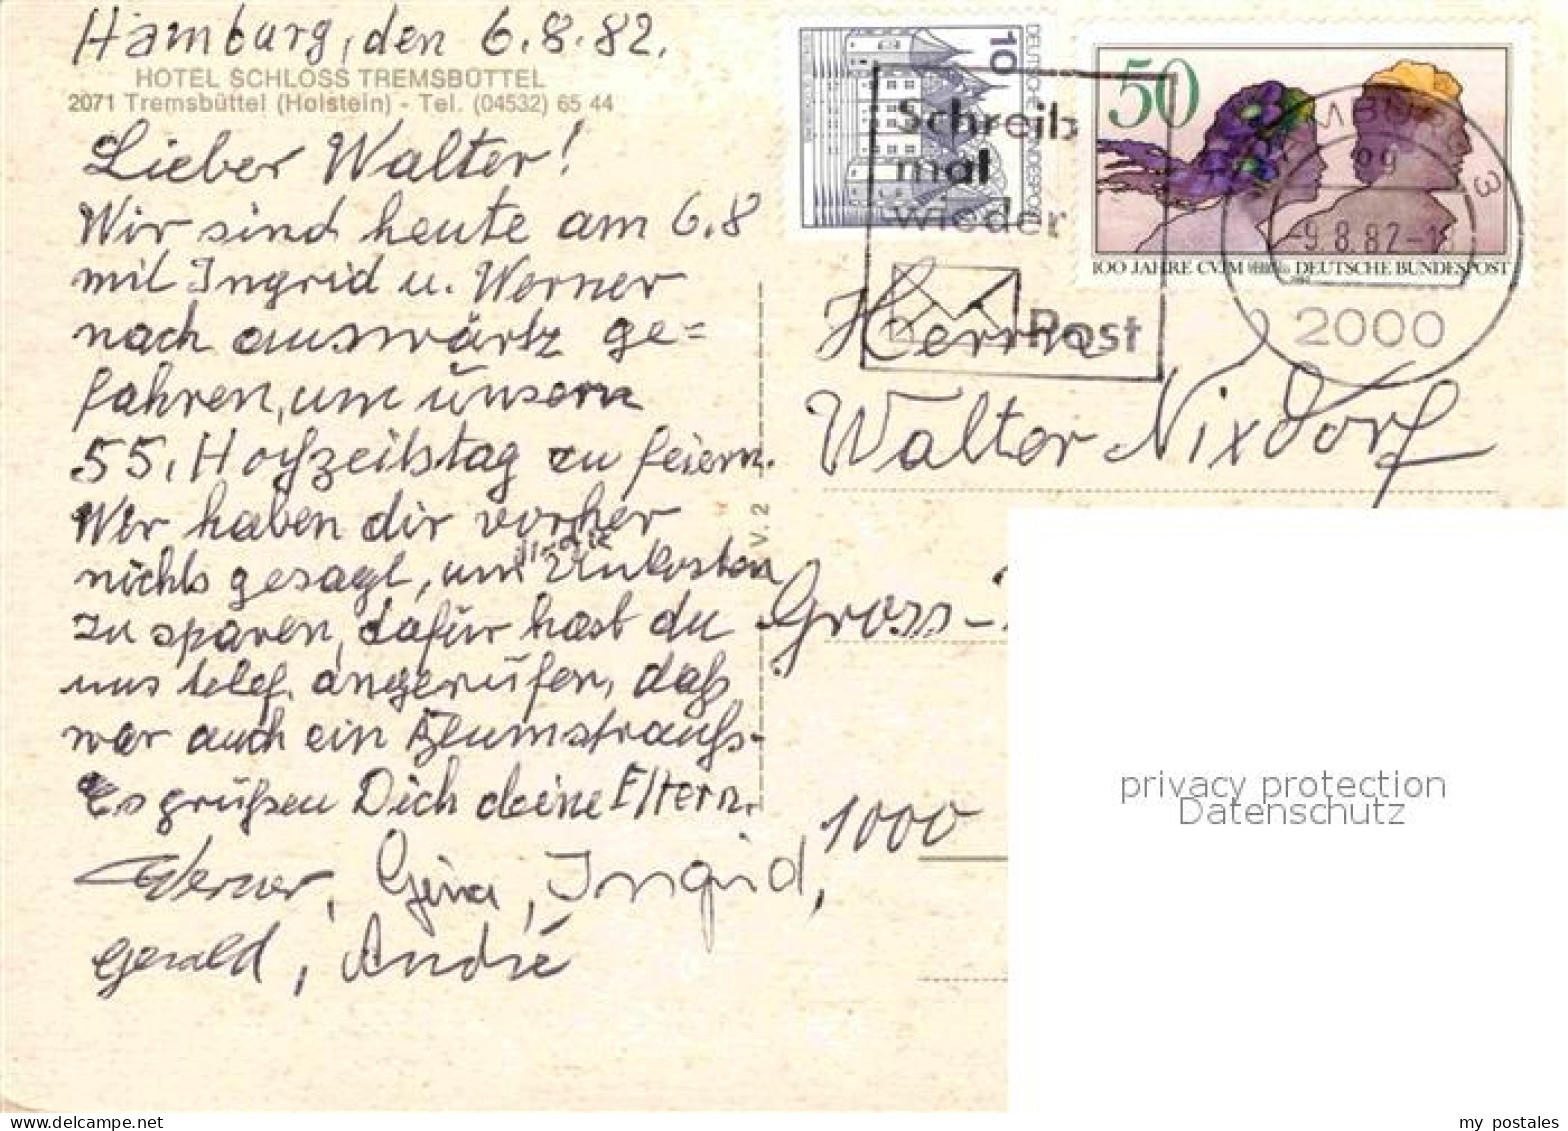 Hamburg, den 6.8.82.
HOTEL SCHLOSS TREMSBÜTTEL
2071 Tremsbüttel (Holstein) - Tel. (04532) 65 44
Lieber Walter!
Wir sind heute am 6.8
mit Ingrid u. Werner
nach auswärtz ge=
fahren, um unsern
55. Hochzeitstag zu feiern.
Wir haben dir vorher
nichts gesagt, um die Unkosten
zu sparen, dafür hast du
uns telef. angerufen, daß
war auch ein Blumstrauß.
Es grüßen Dich deine Eltern.
Werner, Gina, Ingrid,
Gerald, André
V. 2
10
DEUTSCHE BUNDESPOST
50
100 JAHRE CVJM DEUTSCHE BUNDESPOST
Schreib
mal
wieder
Post
HAMBURG
-9.8.82-18
2000
Herrn
Walter Nixdorf
Gross-
1000
privacy protection
Datenschutz
my postales